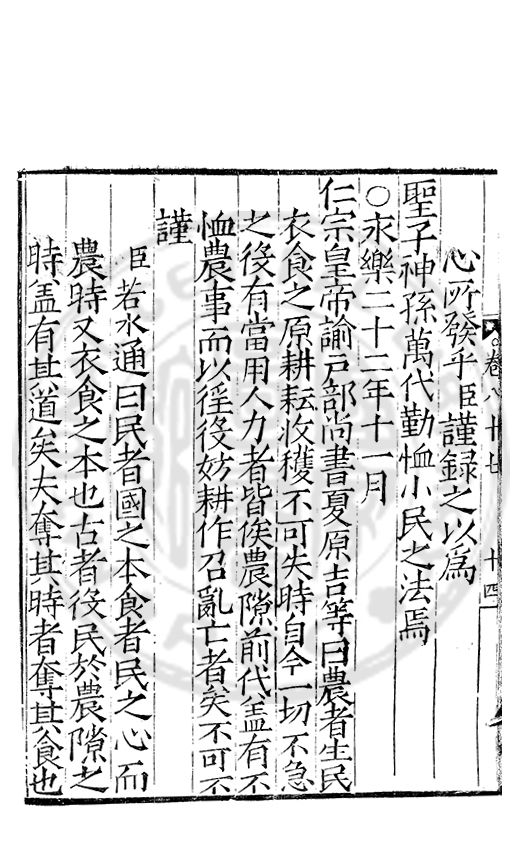 卷八十七　十四
心所發乎臣謹録之以為
聖子神孫萬代勤恤小民之法焉
○永樂二十二年十一月
仁宗皇帝諭户部尚書夏原吉等曰農者生民
衣食之原耕耘收穫不可失時自今一切不急
之後有當用人力者皆俟農隙前代盖有不
恤農事而以徭役妨耕作召亂亡者矣不可不
謹
臣若水通曰民者國之本食者民之心而
農時又衣食之本也古者役民於農隙之
時盖有其道矣夫奪其時者奪其食也